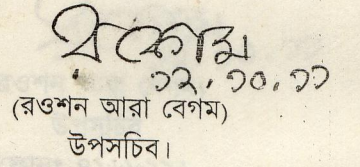 ১২.১০.১১
(রওশন আরা বেগম)
উপসচিব।